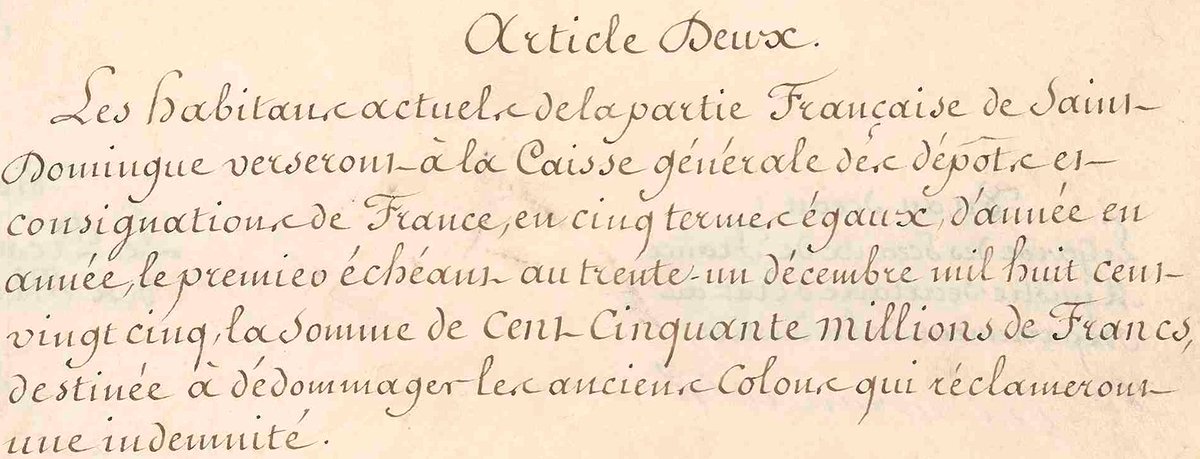 Article Deux.
Les habitans actuels de la partie Française de Saint-
Domingue verseront à la Caisse générale des dépôts et
consignations de France, en cinq termes égaux, d'année en
année, le premier échéant au trente-un décembre mil huit cent
vingt cinq, la Somme de Cent Cinquante Millions de Francs,
destinée à dédommager les anciens Colons qui réclameront
une indemnité.